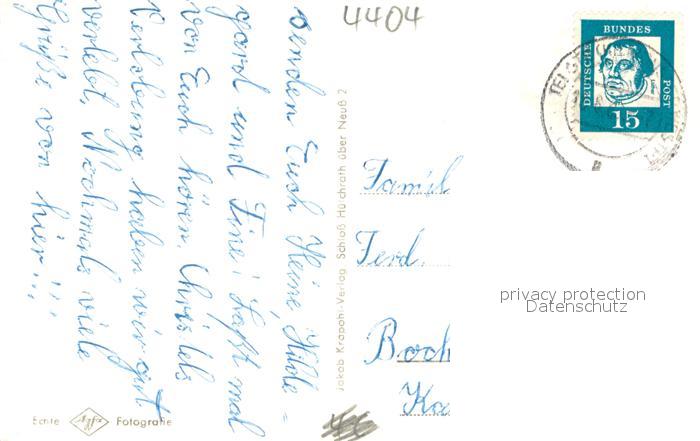 4404
senden Euch Heine, Hilde=
gard und Fine! Laßt mal
von Euch hören. Christels
Verlobung haben wir gut
verlebt. Nochmals viele
Grüße von hier!!!
Jakob Krapohl-Verlag Schloß Hülchrath über Neuß 2
Echte Agfa Fotografie
DEUTSCHE BUNDES POST
15
Famil
Ferd.
Boch
Ka
privacy protection
Datenschutz